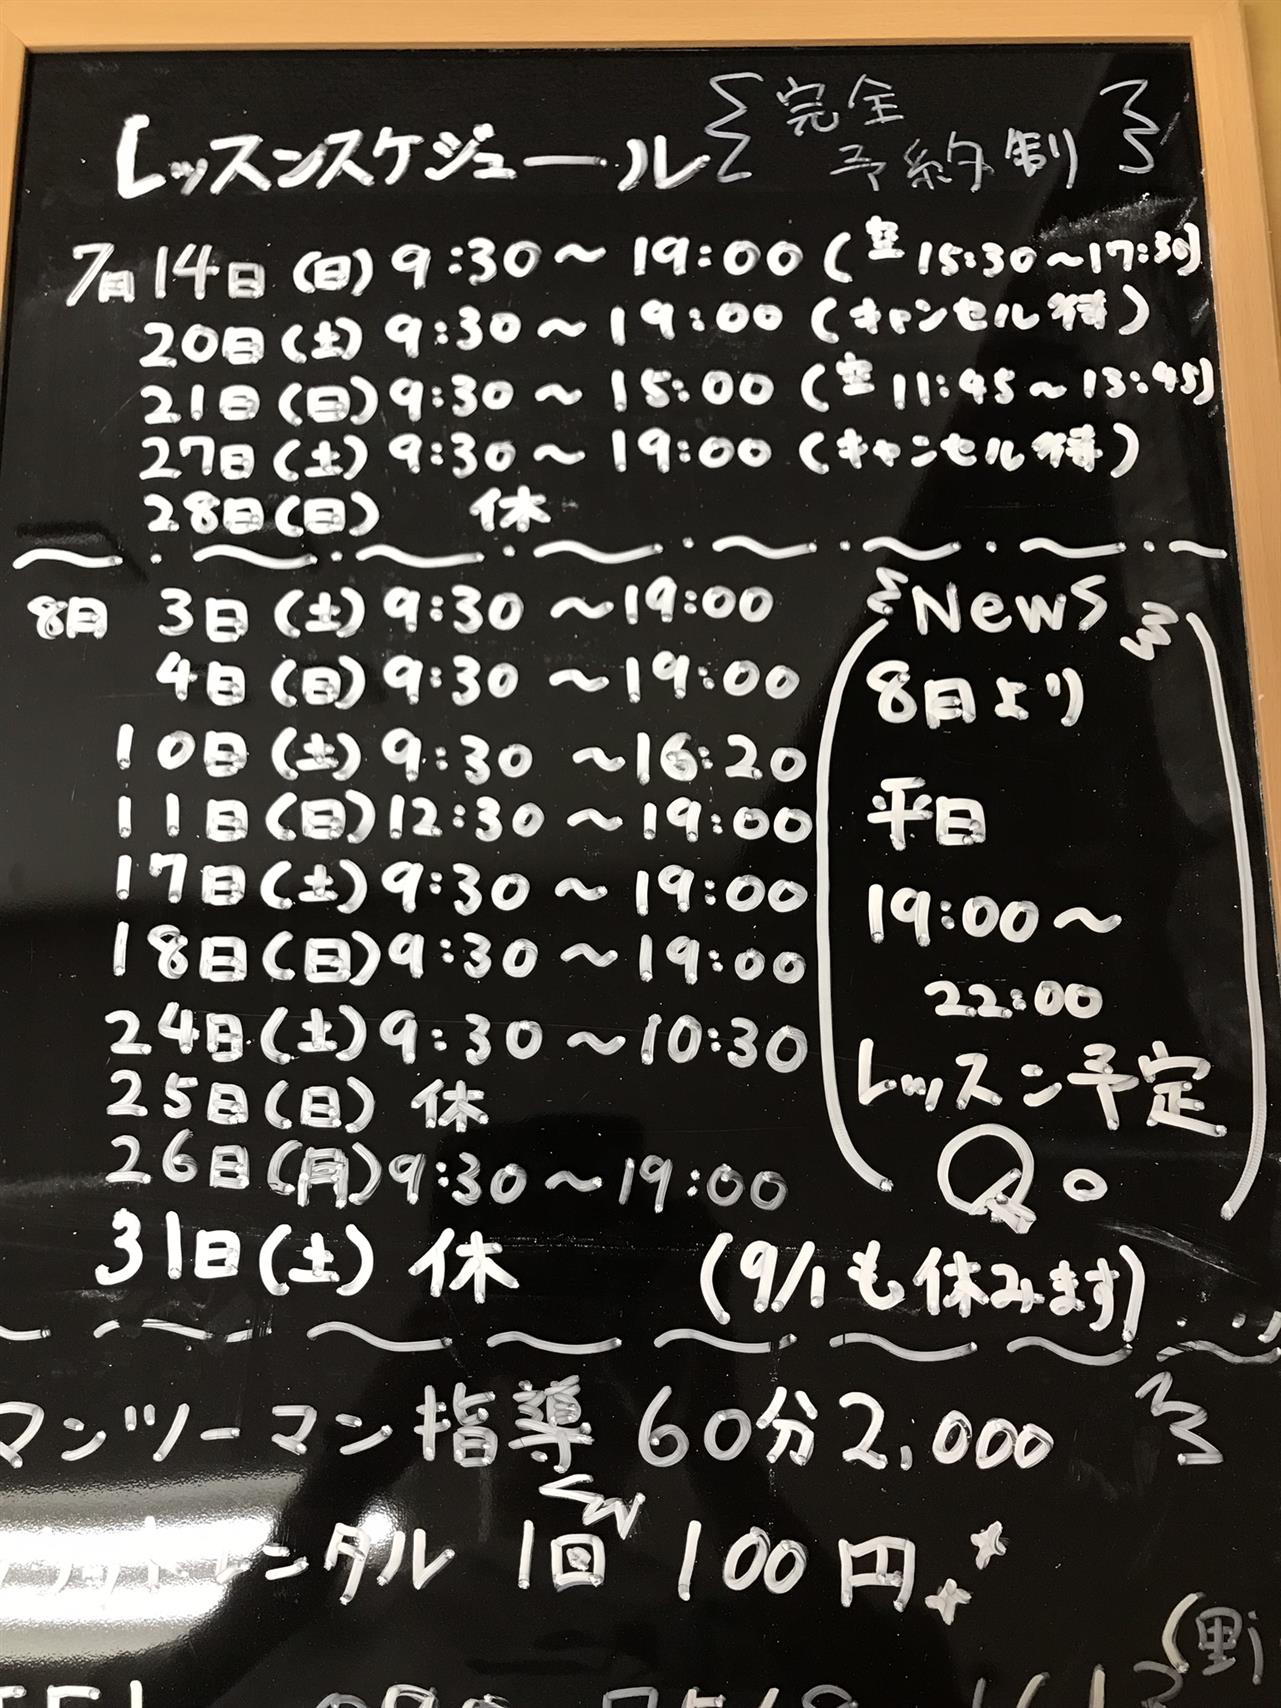 レッスンスケジュール
完全
予約制
7月14日(日)9:30〜19:00(空15:30〜17:30)
20日(土)9:30〜19:00(キャンセル待)
21日(日)9:30〜15:00(空11:45〜13:45)
27日(土)9:30〜19:00(キャンセル待)
28日(日) 休
8月 3日(土)9:30〜19:00
4日(日)9:30〜19:00
10日(土)9:30〜16:20
11日(日)12:30〜19:00
17日(土)9:30〜19:00
18日(日)9:30〜19:00
24日(土)9:30〜10:30
25日(日)休
26日(月)9:30〜19:00
31日(土)休 (9/1も休みます)
News
8日より
平日
19:00〜
22:00
レッスン予定
マンツーマン指導 60分2,000
レンタル 1回 100円
(野
TEL